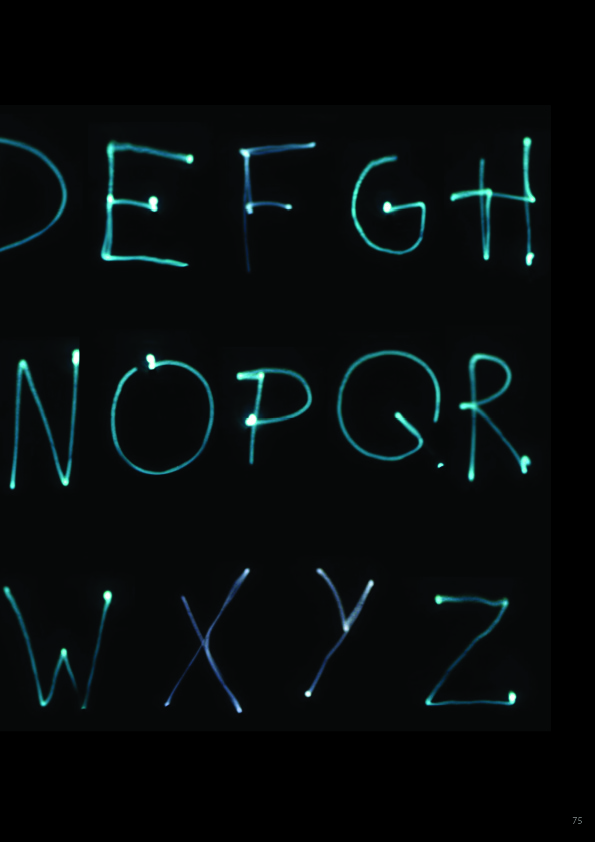 D E F G H
N O P Q R
W X Y Z
75